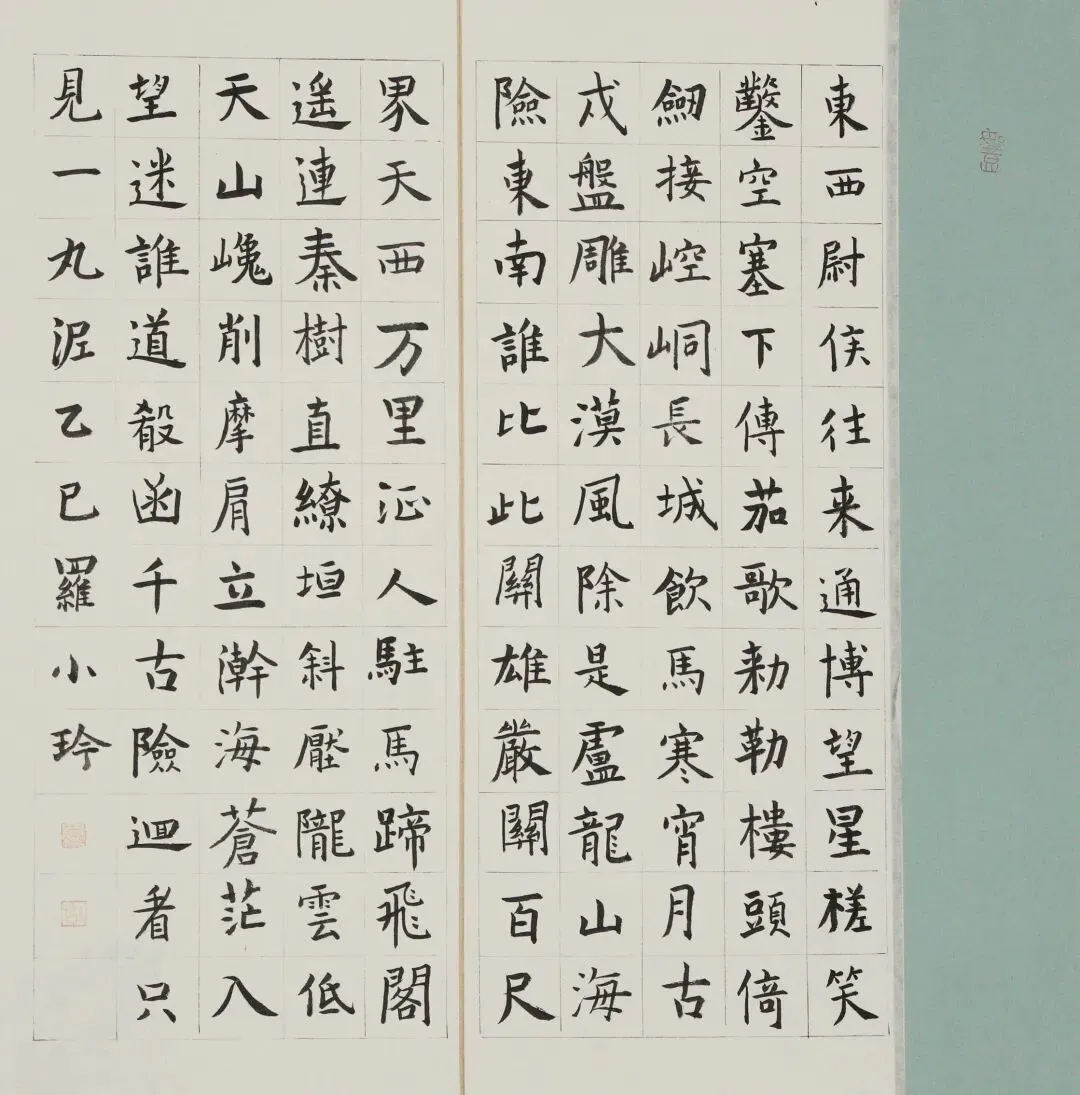 東西尉侯往来通博望星槎笑
鑿空塞下傳茄歌勑勒樓頭倚
劒接崆峒長城飲馬寒宵月古
戍盤雕大漠風除是盧龍山海
險東南誰比此關雄嚴關百尺
界天西万里征人駐馬蹄飛閣
遥連秦樹直繚垣斜壓隴雲低
天山巉削摩肩立瀚海蒼茫入
望迷誰道殽函千古險迴看只
見一丸泥乙巳羅小玲